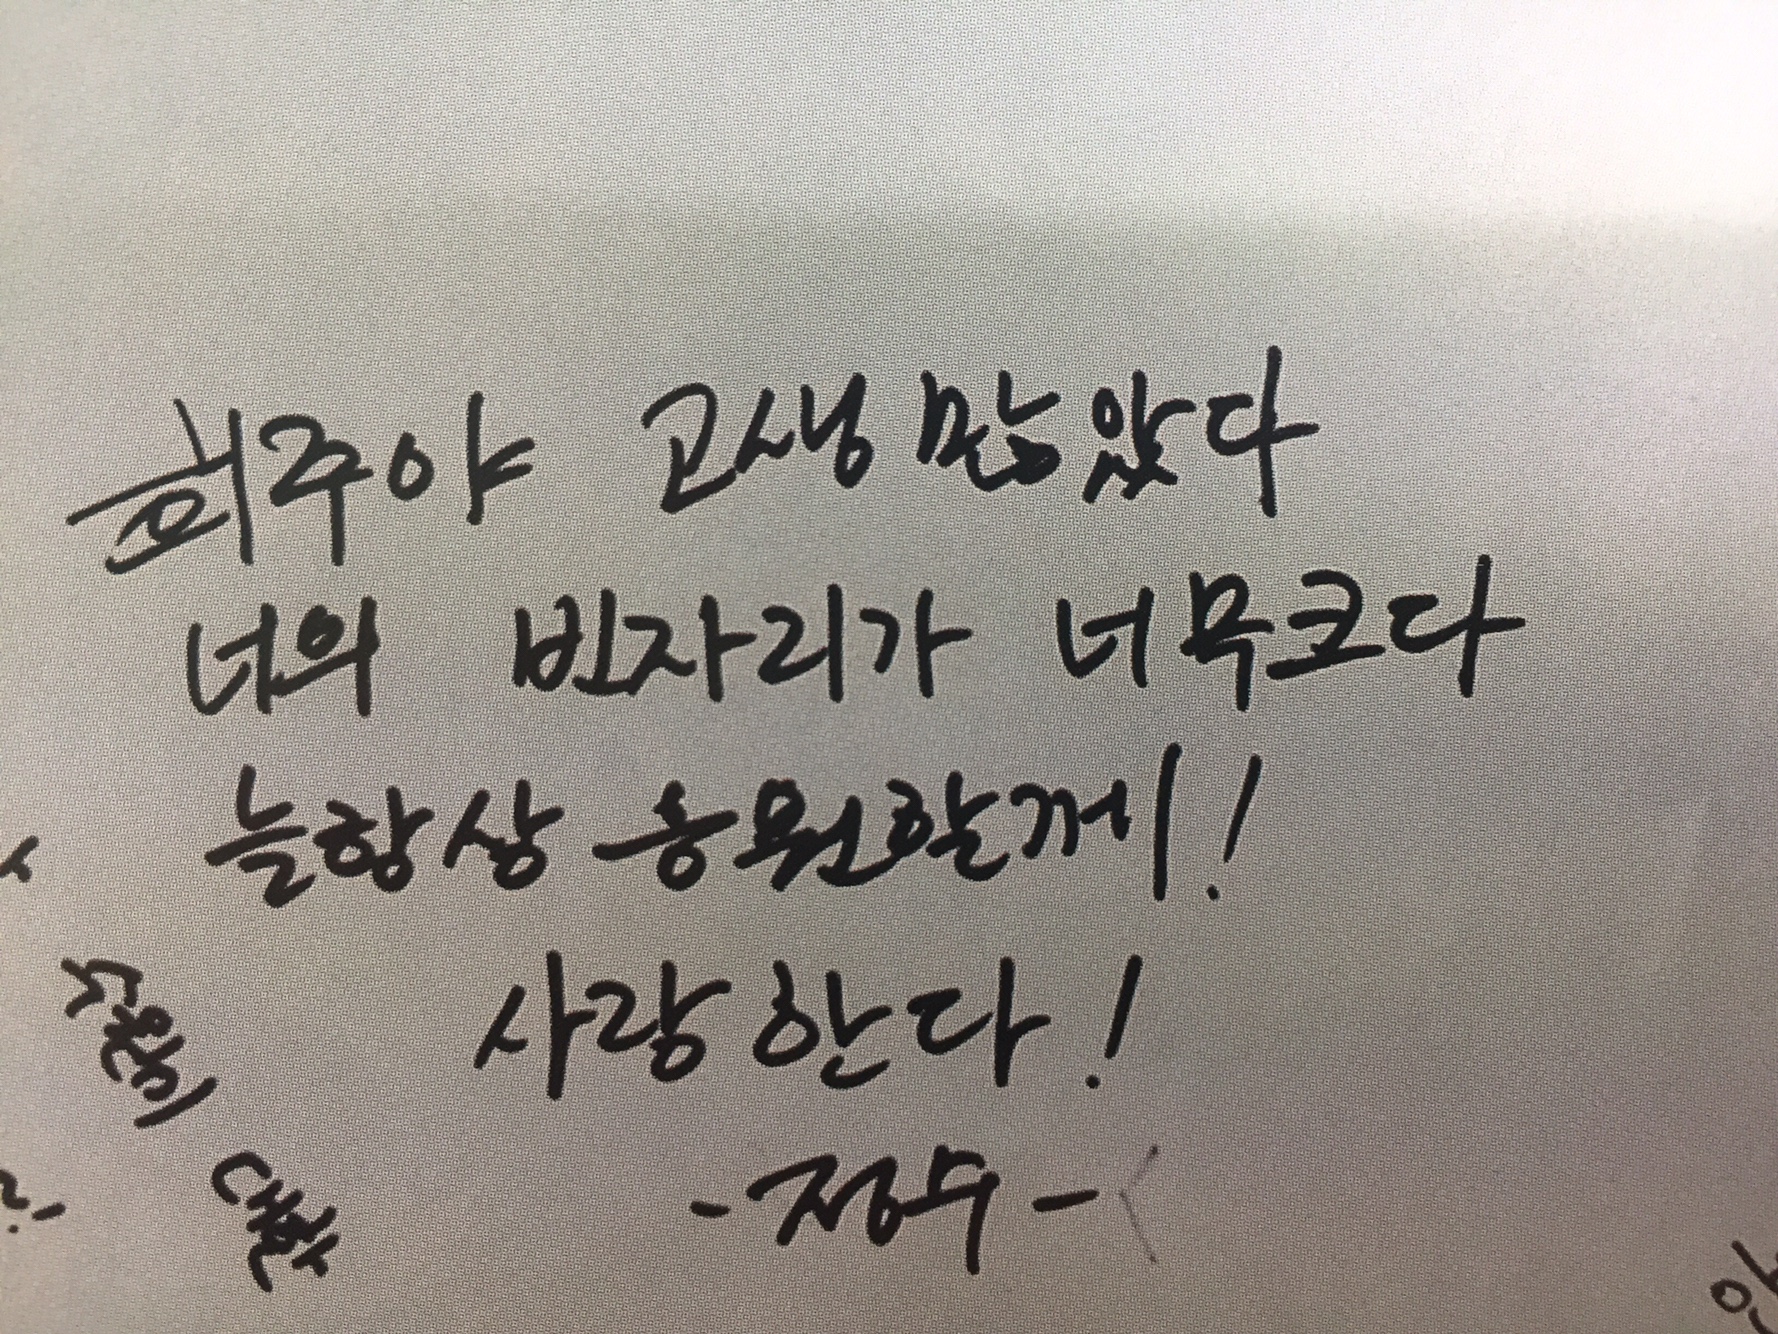 희주야 고생 많았다
너의 빈자리가 너무크다
늘항상 응원할께!
사랑한다!
-정수-